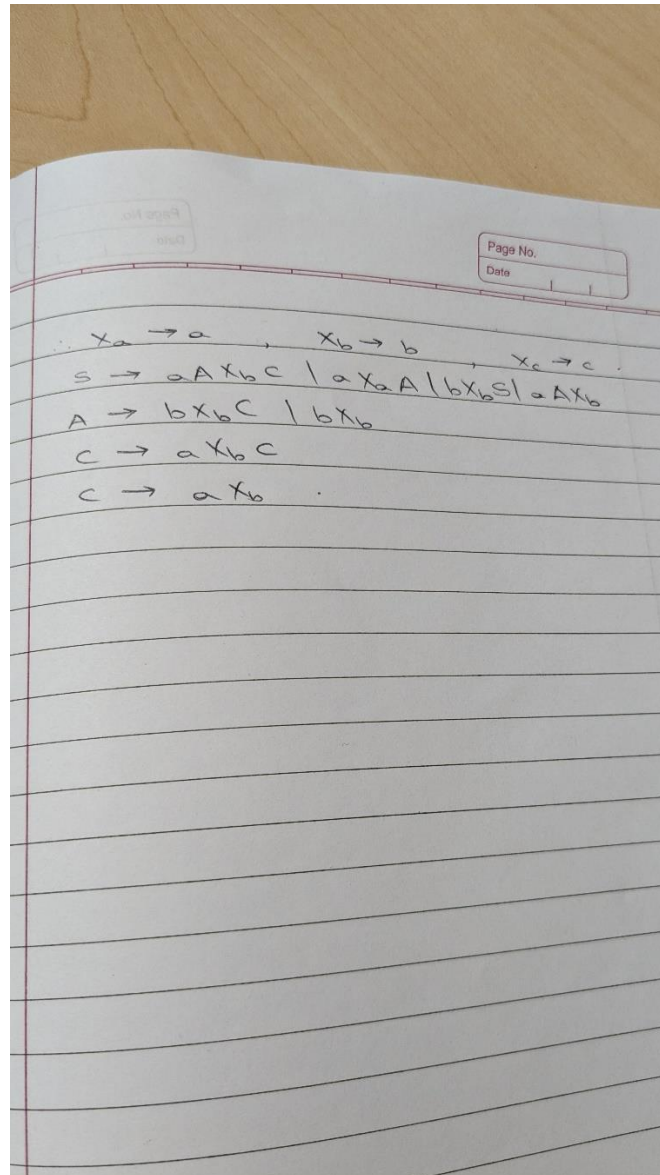 Page No.
Date
∴ Xa → a , Xb → b , Xc → c .
S → aAXbC | aXaA | bXbS | aAXb
A → bXbC | bXb
C → aXbC
C → aXb .